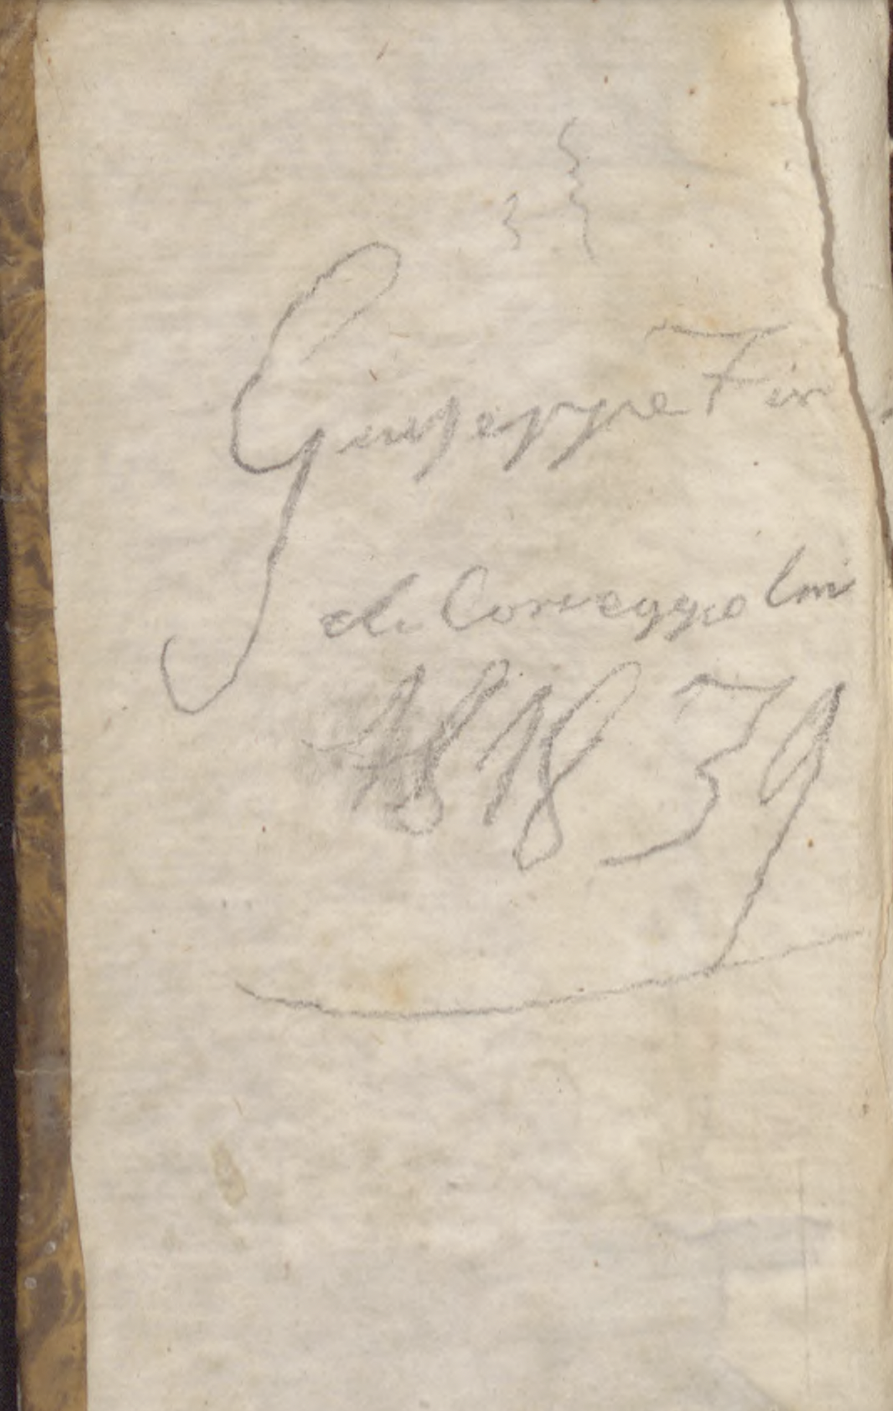 Giuseppe Fin
di Correggio
1839